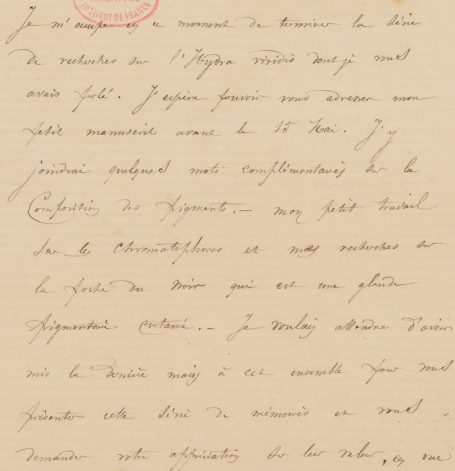 INSTITUT DE FRANCE
Je m'occupe en ce moment de terminer la série
de recherches sur l'Hydra viridis dont je vous
avais parlé. J'espère pouvoir vous adresser mon
petit manuscrit avant le 15 Mai. J'y
joindrai quelques mots complémentaires sur la
Composition des pigments. — mon petit travail
sur les chromatophores et mes recherches sur
la poche du noir qui est une glande
pigmentaire cutanée. — Je voulais attendre d'avoir
mis la dernière main à cet ensemble pour vous
présenter cette série de mémoires et vous
demander votre appréciation sur leur valeur, en vue